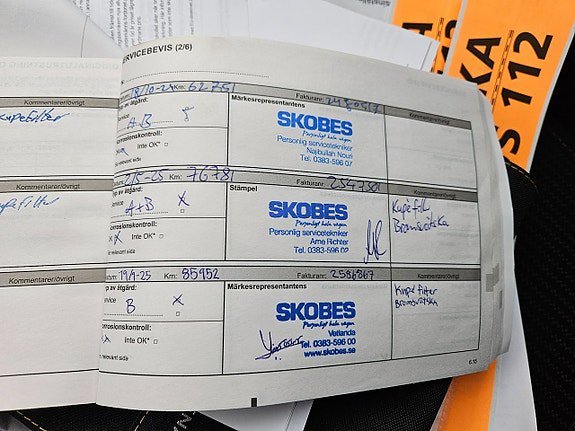 SERVICEBEVIS (2/6)
Kommentarer/övrigt
Kupefilter
18/10-24 Km: 62751
Fakturanr: 2480517
Märkesrepresentantens
Service A+B
Korrosionskontroll:
Inte OK*
SKOBES
Personligt hela vägen
Personlig servicetekniker
Najibullah Nouri
Tel. 0383-596 07
Kommentarer/övrigt
Kommentarer/övrigt
Km: 76781
Fakturanr: 2547301
Stämpel
Service A+B X
Korrosionskontroll:
Inte OK*
relevant side
SKOBES
Personligt hela vägen
Personlig servicetekniker
Arne Richter
Tel. 0383-596 02
Kupefilter
Bromsvätska
Kommentarer/övrigt
Datum: 19/9-25 Km: 85952
Fakturanr: 2586867
Kommentarer/övrigt
Typ av åtgärd:
Märkesrepresentantens
Service B X
Korrosionskontroll:
Inte OK*
relevant side
SKOBES
Personligt hela vägen
Vetlanda
Tel. 0383-596 00
www.skobes.se
Kupefilter
Bromsvätska
KA
S 112